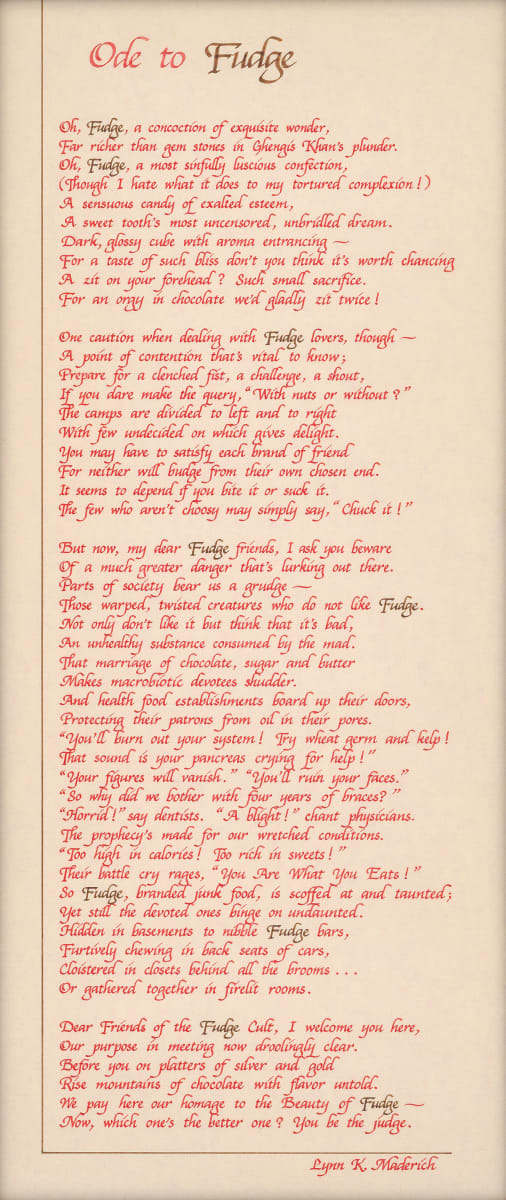 Ode to Fudge
Oh, Fudge, a concoction of exquisite wonder,
Far richer than gem stones in Ghengis Khan's plunder.
Oh, Fudge, a most sinfully luscious confection,
(Though I hate what it does to my tortured complexion!)
A sensuous candy of exalted esteem,
A sweet tooth's most uncensored, unbridled dream.
Dark, glossy cube with aroma entrancing —
For a taste of such bliss don't you think it's worth chancing
A zit on your forehead? Such small sacrifice.
For an orgy in chocolate we'd gladly zit twice!
One caution when dealing with Fudge lovers, though —
A point of contention that's vital to know;
Prepare for a clenched fist, a challenge, a shout,
If you dare make the query, "With nuts or without?"
The camps are divided to left and to right
With few undecided on which gives delight.
You may have to satisfy each brand of friend
For neither will budge from their own chosen end.
It seems to depend if you bite it or suck it.
The few who aren't choosy may simply say, "Chuck it!"
But now, my dear Fudge friends, I ask you beware
Of a much greater danger that's lurking out there.
Parts of society bear us a grudge —
Those warped, twisted creatures who do not like Fudge.
Not only don't like it but think that it's bad,
An unhealthy substance consumed by the mad.
That marriage of chocolate, sugar and butter
Makes macrobiotic devotees shudder.
And health food establishments board up their doors,
Protecting their patrons from oil in their pores.
"You'll burn out your system! Try wheat germ and kelp!
That sound is your pancreas crying for help!"
"Your figures will vanish." "You'll ruin your faces."
"So why did we bother with four years of braces?"
"Horrid!" say dentists. "A blight!" chant physicians.
The prophecy's made for our wretched conditions.
"Too high in calories! Too rich in sweets!"
Their battle cry rages, "You Are What You Eats!"
So Fudge, branded junk food, is scoffed at and taunted;
Yet still the devoted ones binge on undaunted.
Hidden in basements to nibble Fudge bars,
Furtively chewing in back seats of cars,
Cloistered in closets behind all the brooms...
Or gathered together in firelit rooms.
Dear Friends of the Fudge Cult, I welcome you here,
Our purpose in meeting now droolingly clear.
Before you on platters of silver and gold
Rise mountains of chocolate with flavor untold.
We pay here our homage to the Beauty of Fudge —
Now, which one's the better one? You be the judge.
Lynn K. Maderich